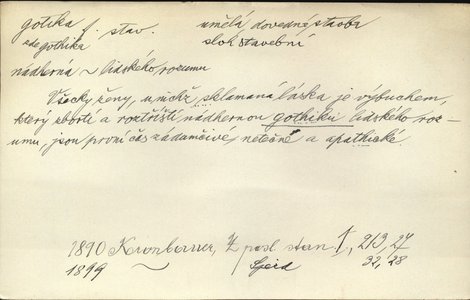 gotika f. stav. umělá dovedná stavba
zde gothika sloh stavební
nádherná ~ lidského rozumu
Všecky ženy, u nichž sklamaná láska je výbuchem,
který zboří a roztříští nádhernou gothiku lidského roz-
umu, jsou první čas zádumčivé, netečné a apathické.
1890 posl. stan. I, 213, 27
1899 32, 28